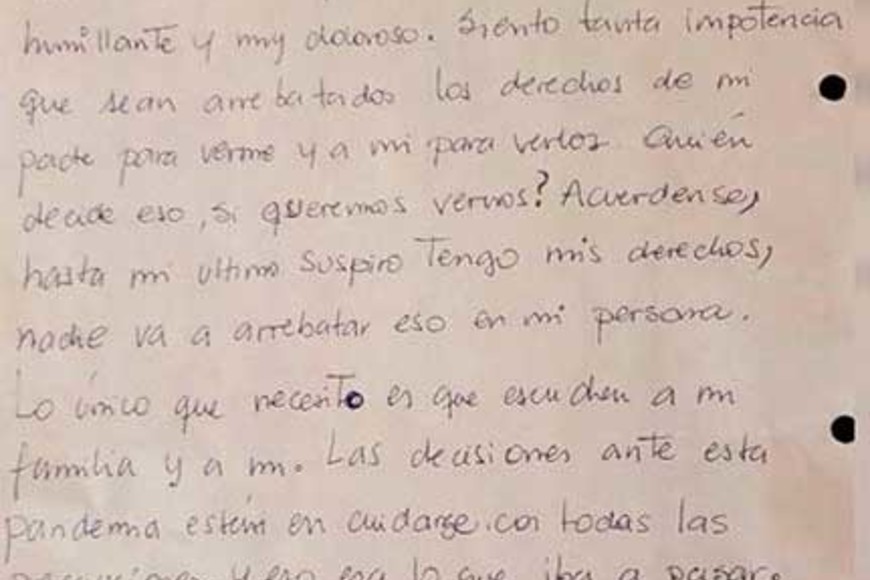 humillante y muy doloroso. Siento tanta impotencia
que sean arrebatados los derechos de mi
padre para verme y a mi para verlo. Quién
decide eso, si queremos vernos? Acuerdense,
hasta mi ultimo suspiro Tengo mis derechos,
nadie va a arrebatar eso en mi persona.
Lo único que necesito es que escuchen a mi
familia y a mi. Las decisiones ante esta
pandemia están en cuidarse con todas las
y eso era lo que iba a pasar.